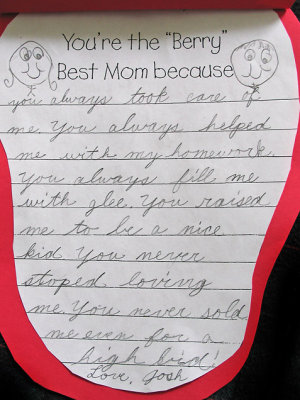 You're the "Berry"
Best Mom because
you always took care of
me. You always helped
me with my homework.
You always fill me
with glee. You raised
me to be a nice
kid. You never
stoped loving
me. You never sold
me even for a
high bid!
Love, Josh